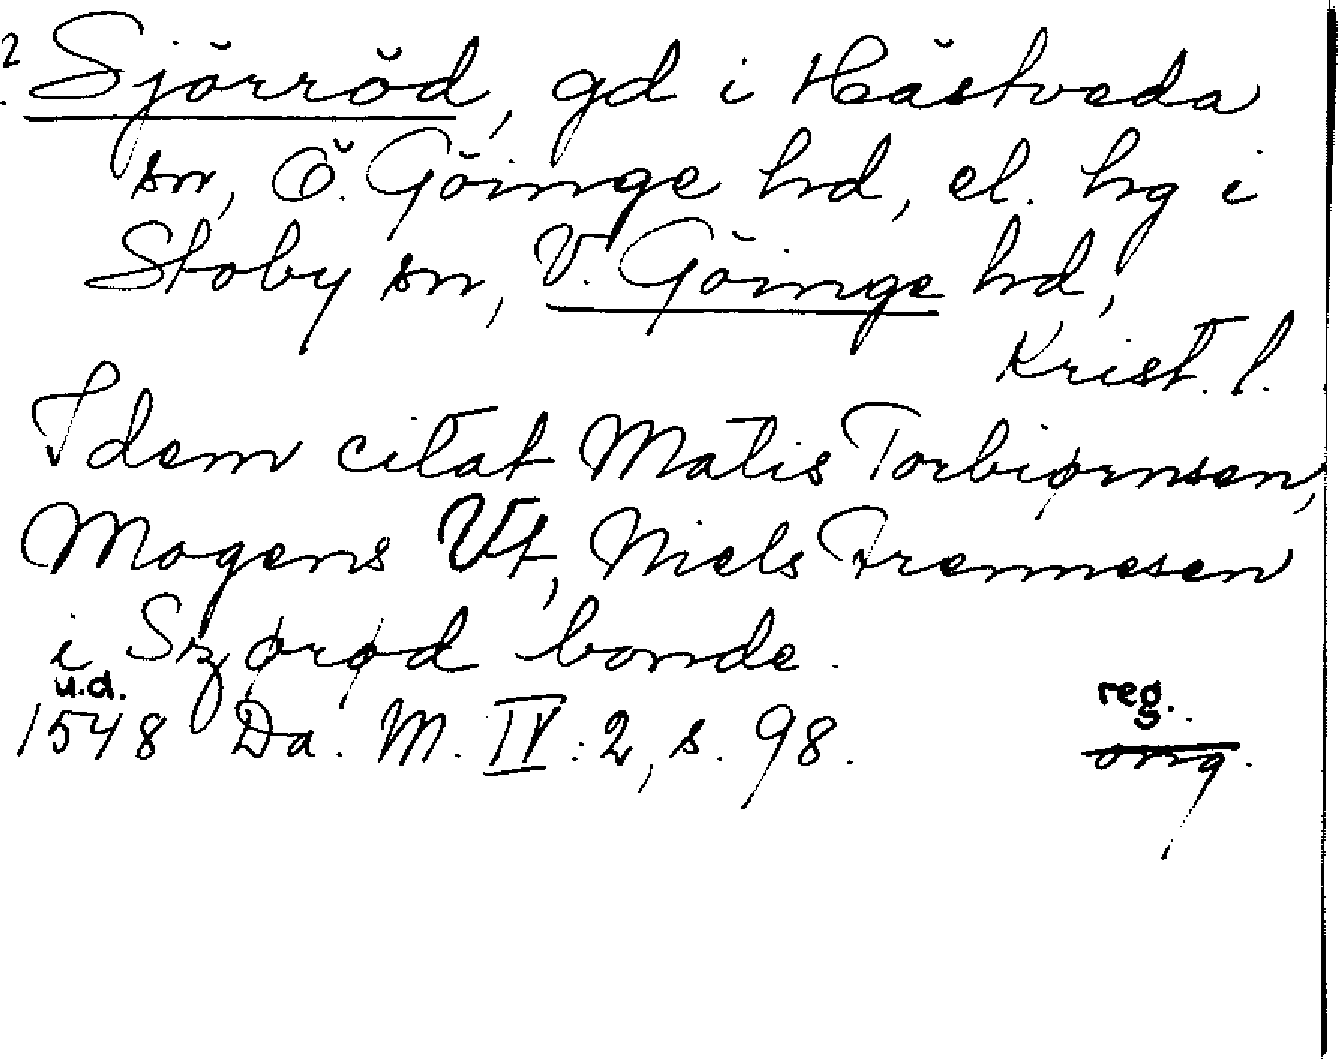 ? Sjörröd, gd i Hästveda
sn, Ö. Göinge hd, el. hg i
Stoby sn, V. Göinge hd,
Krist. l.
Idem citat Matis Torbiørnsen,
Mogens Vt, Niels Trennesen
i Szørød bonde.
u.d.
1548 Da. M. IV:2, s. 98.
reg.
orig.